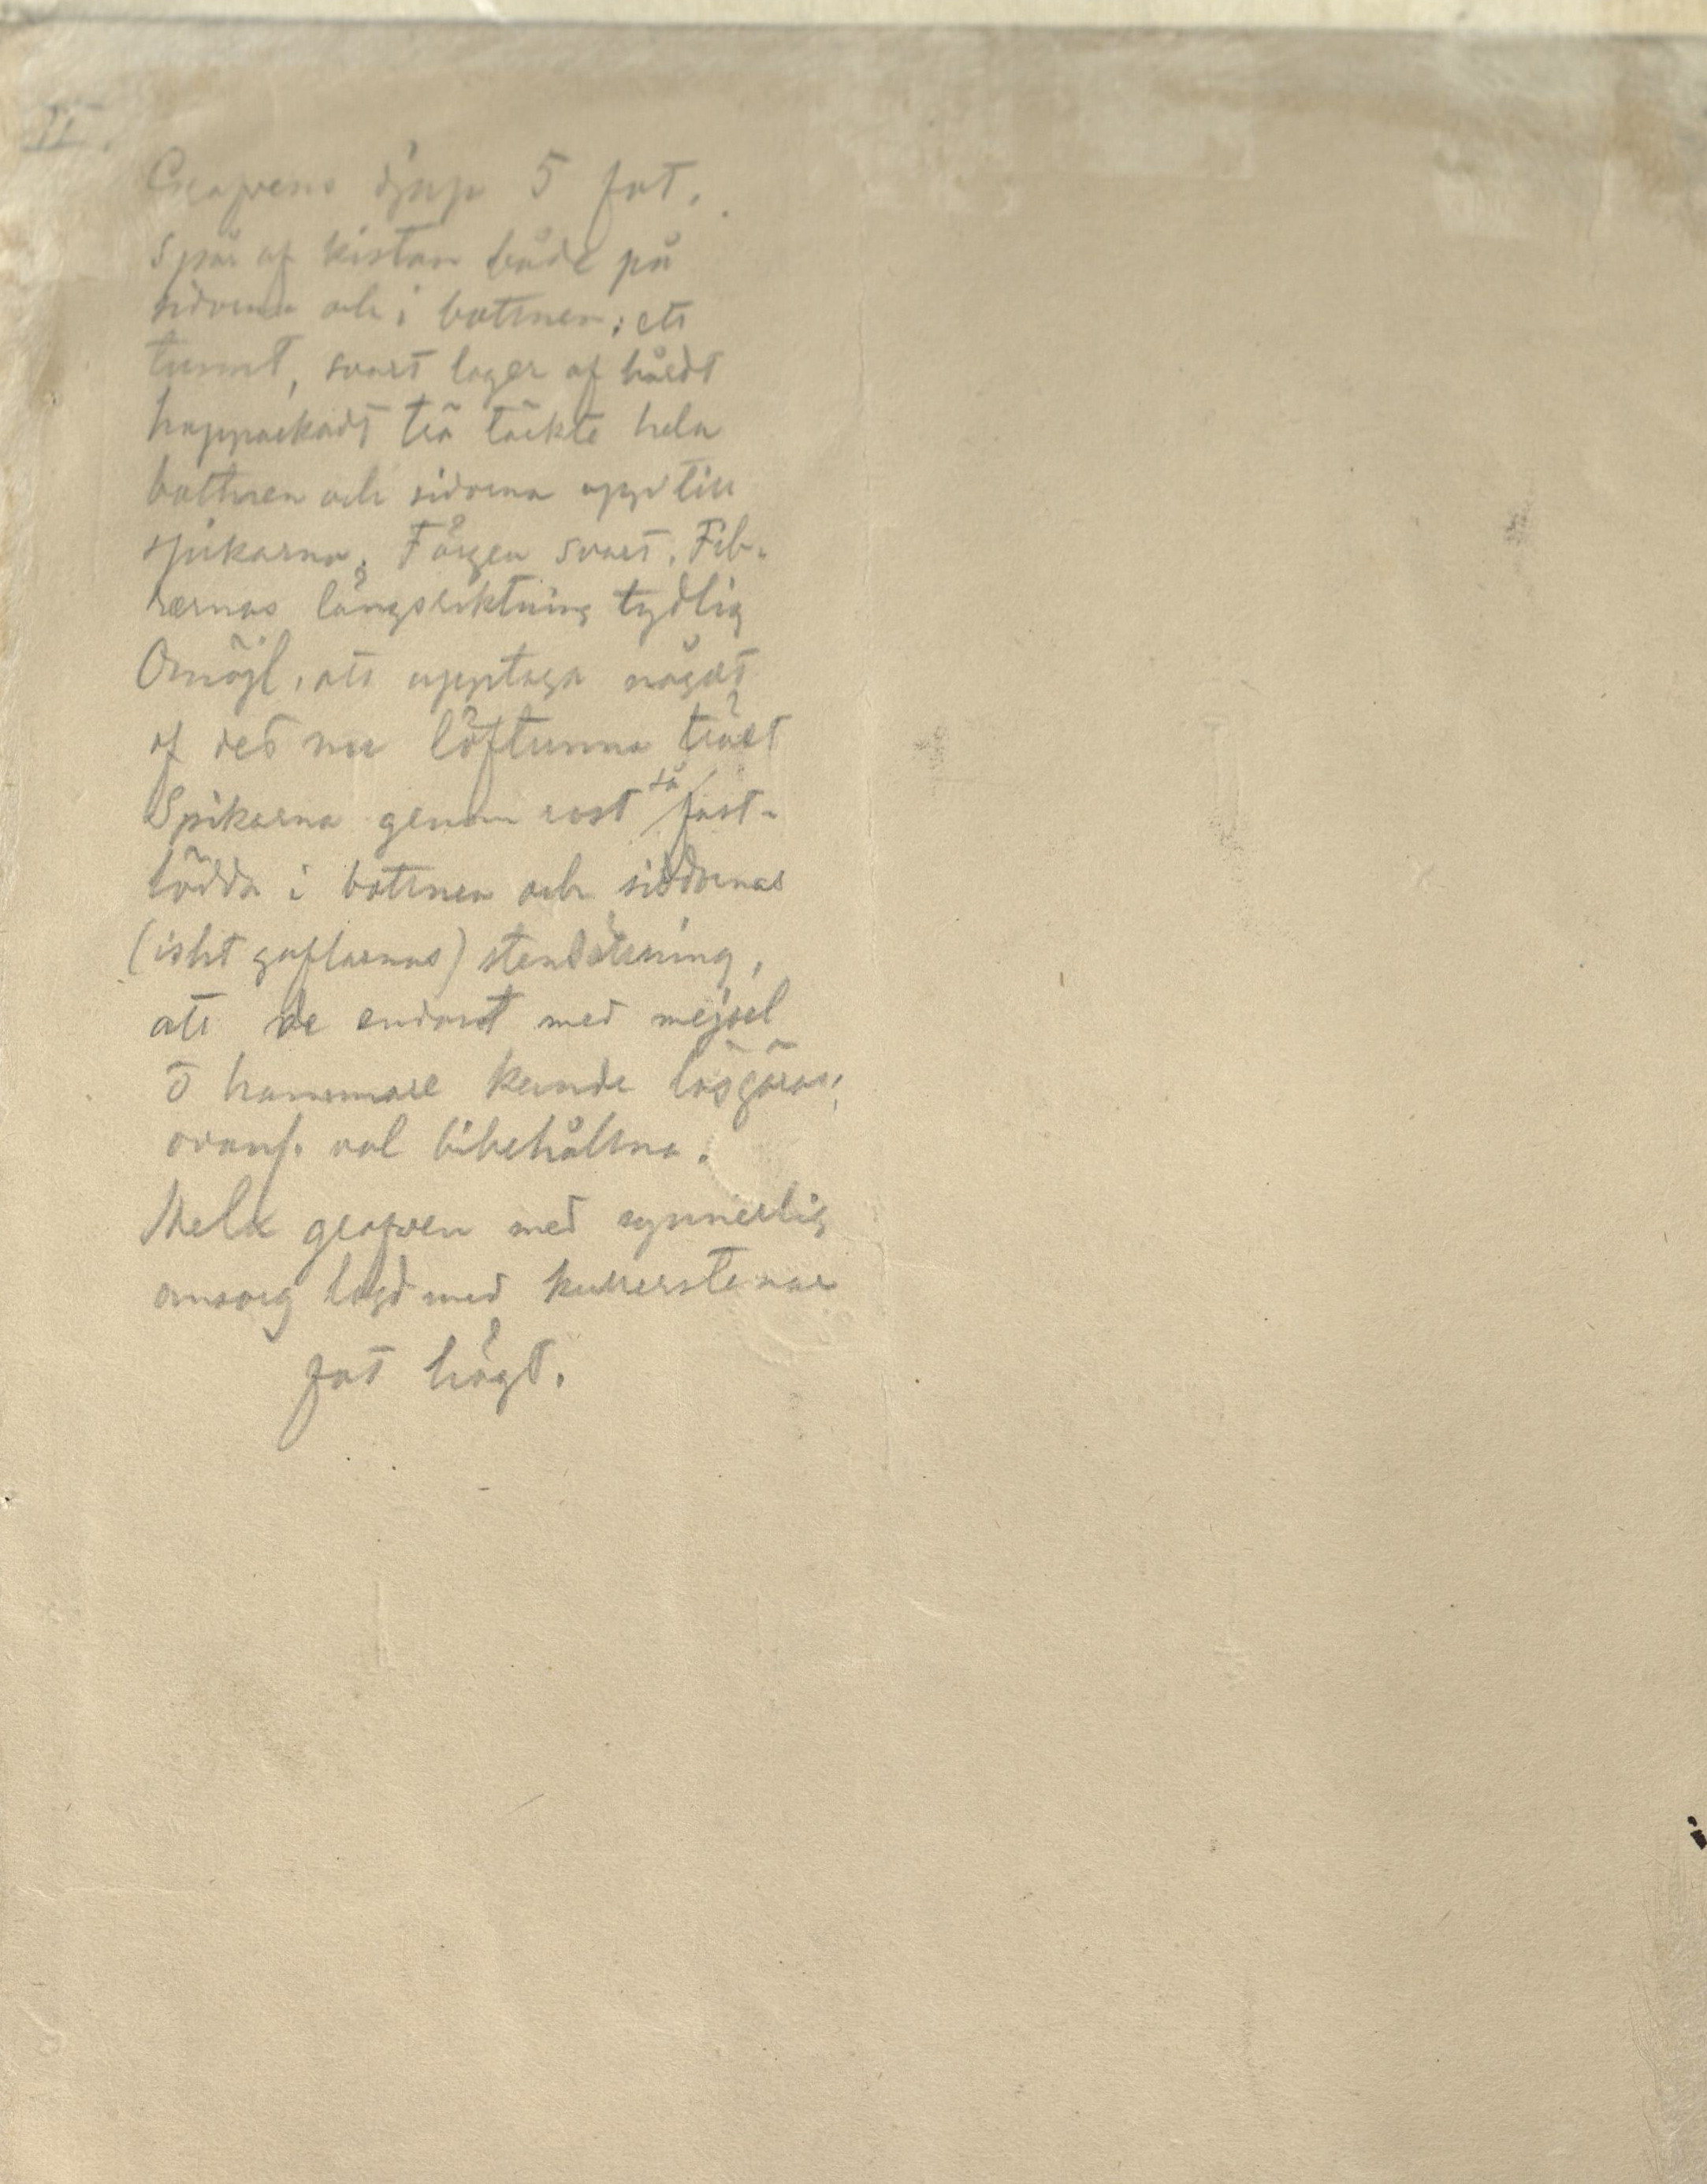 II.
Grafvens djup 5 fot.
Spår af kistan både på
sidorna och i bottnen; ett
tunnt, svart lager af hårdt
hoppackadt trä täckte hela
bottnen och sidorna upp till
spikarna. Färgen svart. Fib-
rernas längsriktning tydlig
Omöjl. att upptaga något
af det nu löftunna träet
Spikarna genom rost så fast-
lödda i bottnen och sidornas
(isht gaflarnas) stensättning,
att de endast med mejsel
o hammare kunde lösgöras,
ovanl. väl bibehållna.
Hela grafven med synnerlig
omsorg lagd med kullerstenar
fot högt.